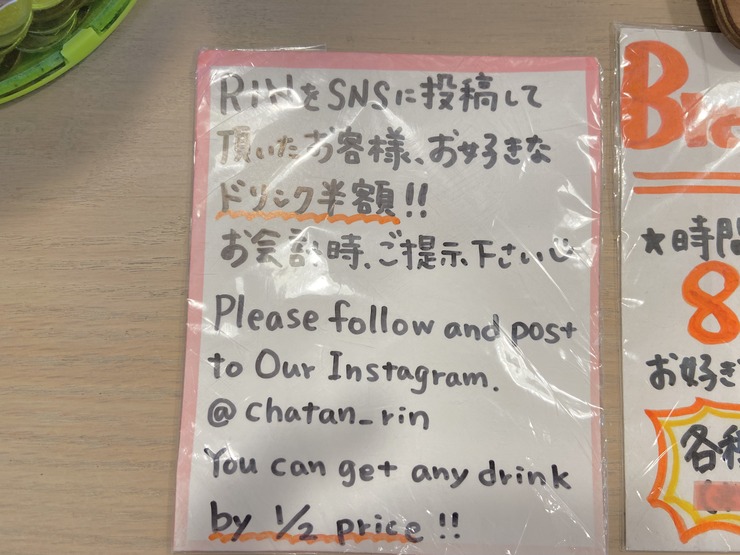 RINをSNSに投稿して
頂いたお客様、お好きな
ドリンク半額!!
お会計時、ご提示下さい
Please follow and post
to Our Instagram.
@chatan_rin
You can get any drink
by 1/2 price!!
★時間
8
お好き
各種